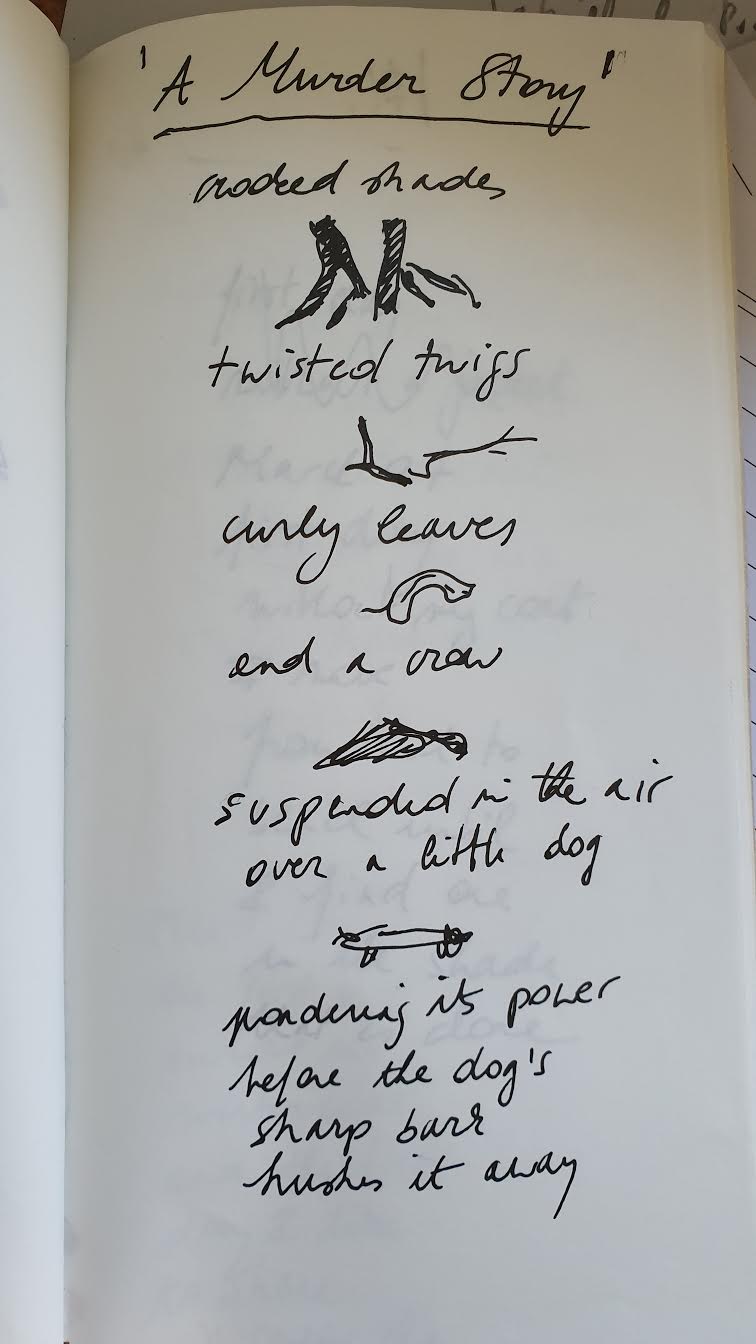 'A Murder Story'
crooked shades
twisted twigs
curly leaves
and a crow
suspended in the air
over a little dog
pondering its power
before the dog's
sharp bark
hushes it away